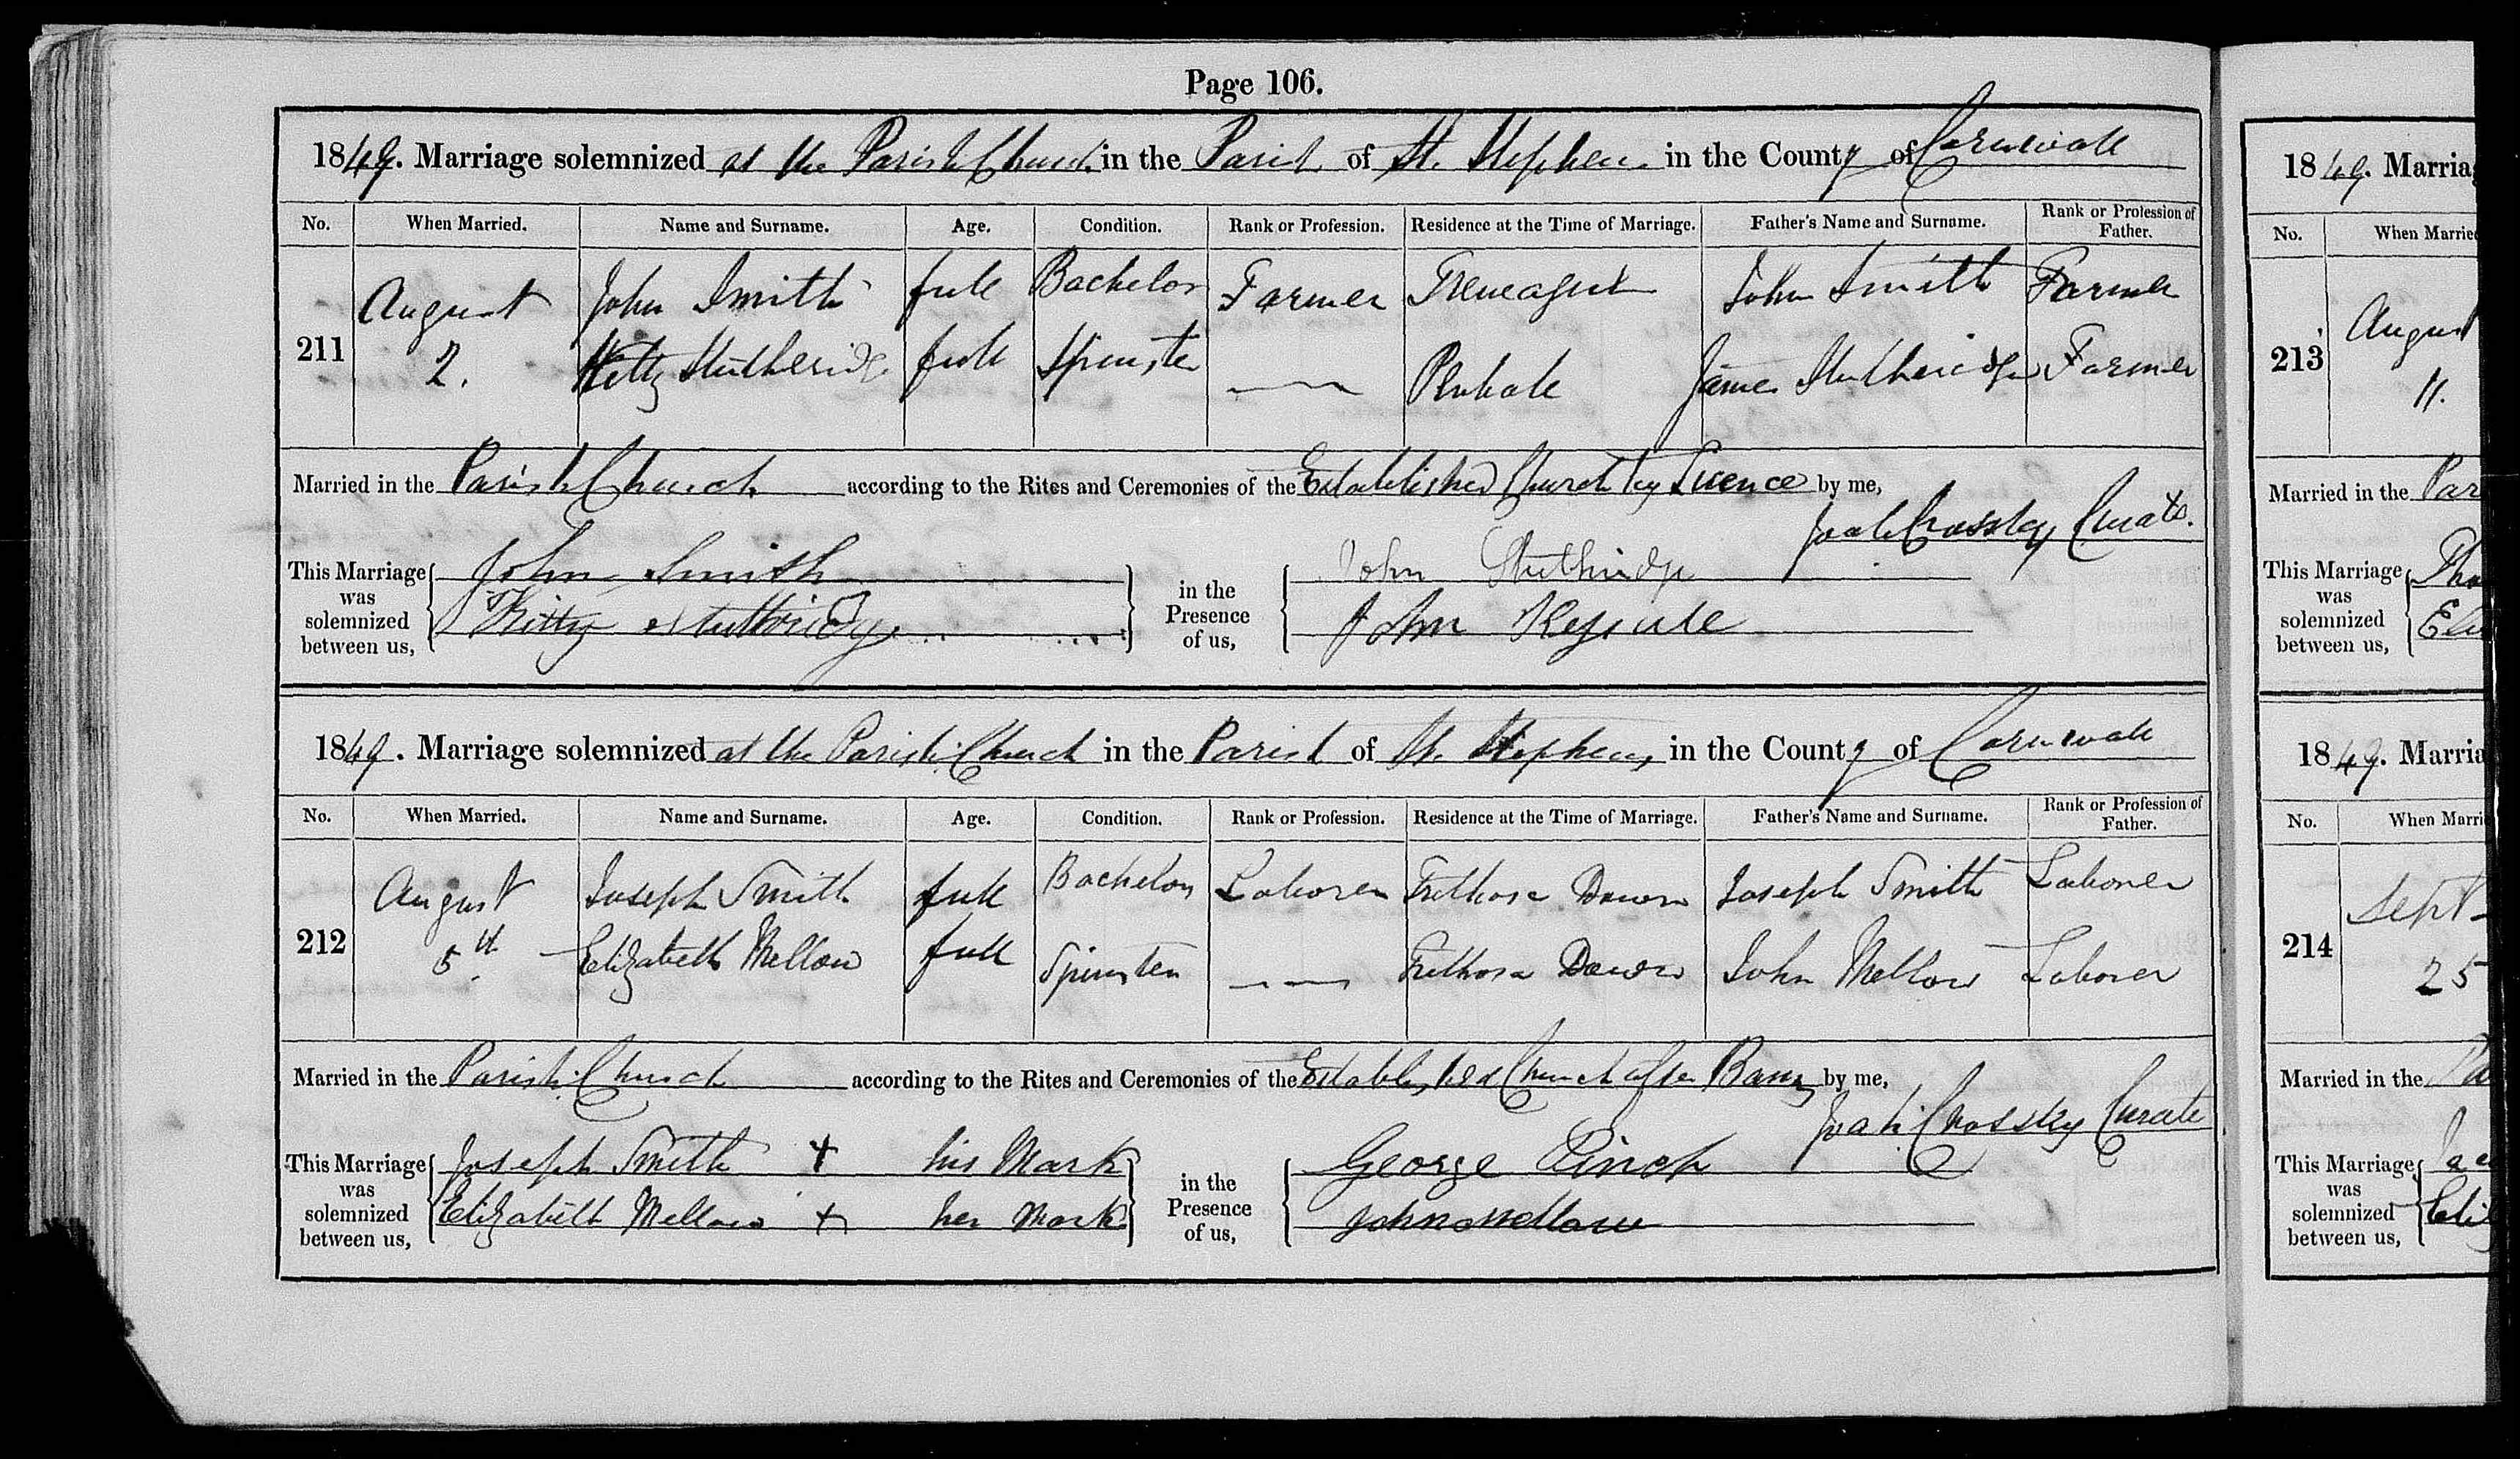 Page 106.
1849. Marriage solemnized at the Parish Church in the Parish of St. Stephens in the County of Cornwall
No. When Married. Name and Surname. Age. Condition. Rank or Profession. Residence at the Time of Marriage. Father's Name and Surname. Rank or Profession of Father.
211 August 2. John Smith full Bachelor Farmer John Smith Farmer
Kitty Stutheridge full Spinster James Stutheridge Farmer
Married in the Parish Church according to the Rites and Ceremonies of the Established Church by Licence by me,
Crossley Curate.
This Marriage was solemnized between us, John Smith in the Presence of us, John Stuthridge
Kitty Stuttridge John
1849. Marriage solemnized at the Parish Church in the Parish of St. Stephens in the County of Cornwall
No. When Married. Name and Surname. Age. Condition. Rank or Profession. Residence at the Time of Marriage. Father's Name and Surname. Rank or Profession of Father.
212 August 5th Joseph Smith full Bachelor Laborer Trethosa Downs Joseph Smith Laborer
Elizabeth Mellow full Spinster Trethosa Downs John Mellow Laborer
Married in the Parish Church according to the Rites and Ceremonies of the Established Church after Banns by me,
Crossley Curate
This Marriage was solemnized between us, Joseph Smith + his Mark in the Presence of us, George Pinch
Elizabeth Mellow + her Mark John Mellow
1849. Marria
No. When Marrie
213 August 11.
Married in the Par
This Marriage was solemnized between us, Tho
1849. Marria
No. When Marri
214 Sept 25
Married in the Pa
This Marriage was solemnized between us,
Eliz